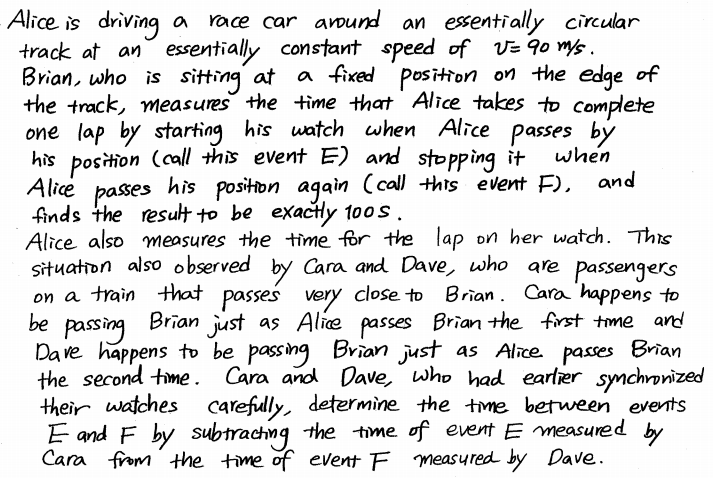 Alice is driving a race car around an essentially circular
track at an essentially constant speed of v = 90 m/s.
Brian, who is sitting at a fixed position on the edge of
the track, measures the time that Alice takes to complete
one lap by starting his watch when Alice passes by
his position (call this event E) and stopping it when
Alice passes his position again (call this event F), and
finds the result to be exactly 100 s.
Alice also measures the time for the lap on her watch. This
situation also observed by Cara and Dave, who are passengers
on a train that passes very close to Brian. Cara happens to
be passing Brian just as Alice passes Brian the first time and
Dave happens to be passing Brian just as Alice passes Brian
the second time. Cara and Dave, who had earlier synchronized
their watches carefully, determine the time between events
E and F by subtracting the time of event E measured by
Cara from the time of event F measured by Dave.